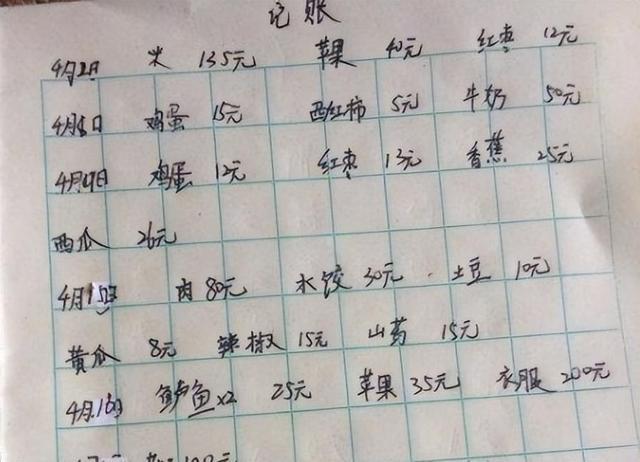 记账
4月2日 米 135元 苹果 40元 红枣 12元
4月8日 鸡蛋 15元 西红柿 5元 牛奶 50元
4月9日 鸡蛋 12元 红枣 13元 香蕉 25元
西瓜 26元
4月15日 肉 80元 水饺 30元 土豆 10元
黄瓜 8元 辣椒 15元 山药 15元
4月16日 鲈鱼x2 25元 苹果 35元 衣服 200元